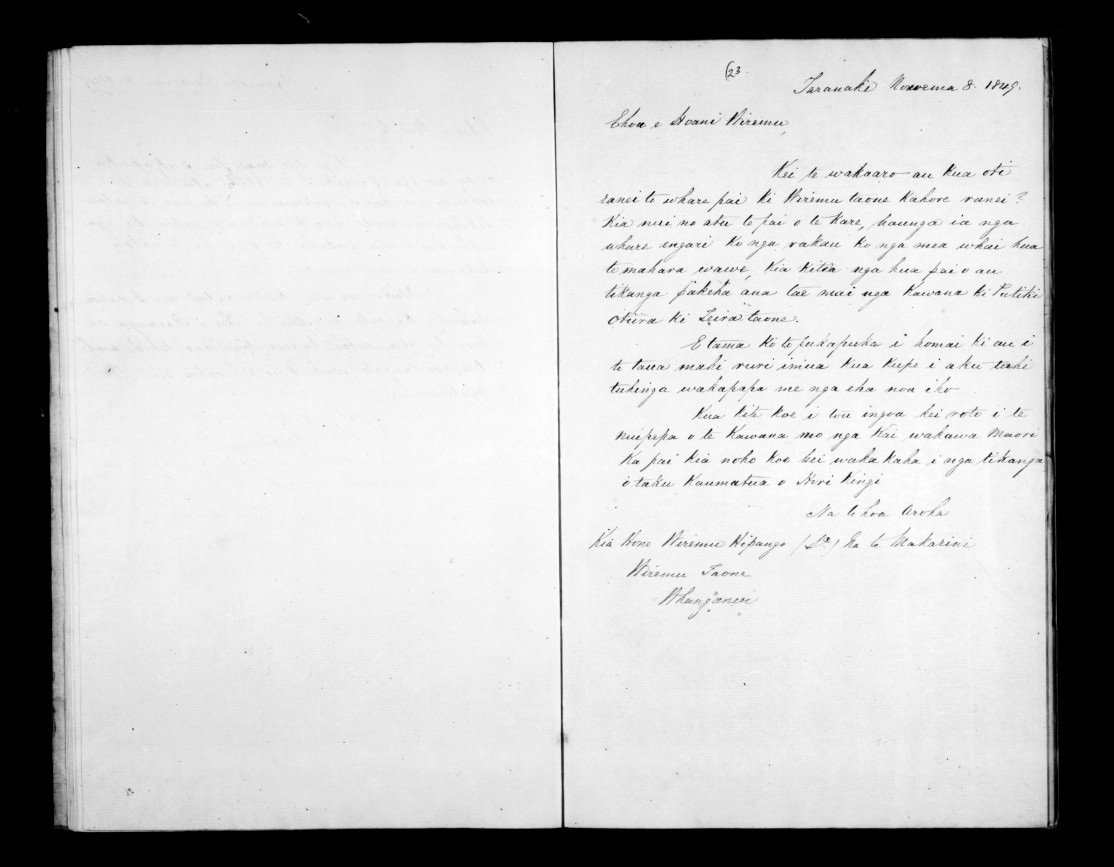 23
Taranaki Novema 8. 1849.
Ehoa e Hoani Wiremu,
Kei te wakaaro au kua oti
ranei te whare pai ki Wiremu taone Kahore ranei?
Kia nui no atu te pai o te kare, haunga ia nga
whare engari ko nga rakau ko nga mea whai hua
te mahara wawe, kia kitea nga hua pai o au
tikanga pakeha ana tae mui nga Kawana ki Putiki
Otiira ki taone.
E tama ko te pukapuka i homai ki au i
te taua mahi ruri inua kua kupe i aku tahi
tuhinga wakapapa me nga eha noa iho
Kua kite koe i tou ingoa kei roto i te
nuipepa o te Kawana mo nga Kai wakawa Maori
Ka pai kia noho koe hei waka kaha i nga tikanga
o taku Kaumatua o Hori Kingi
Na te hoa Aroha
Kia Hone Wiremu Hipango Na te Makarini
Wiremu Taone
Whanganui